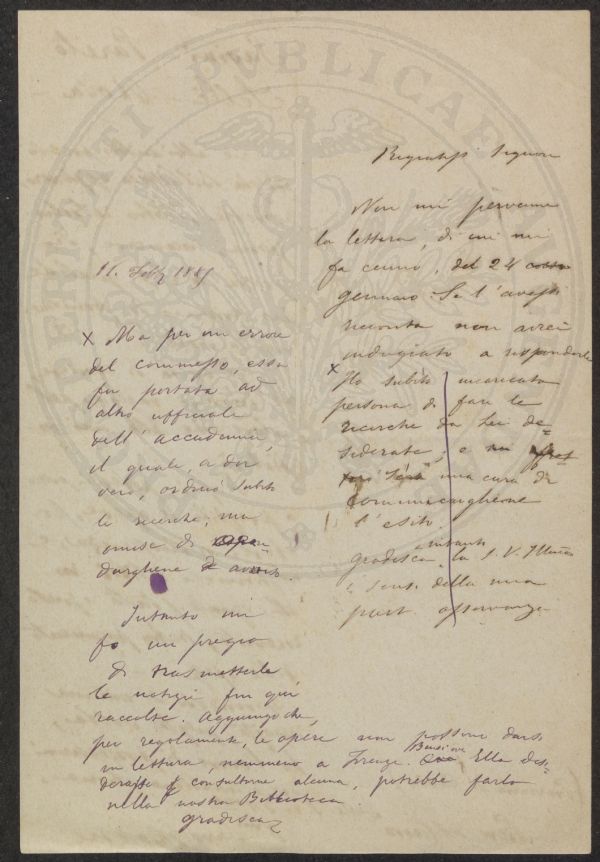 Signore
Non mi pervenne
la lettera, di cui mi
fa cenno, del 24
gennaio. Se l'avessi
ricevuta non avrei
indugiato a risponderle
x Ho subito incaricata
persona di fare le
ricerche da Lei de-
siderate, e
sarà mia cura di
comunicargliene
l'esito.
intanto
Gradisca la S. V. Illma
i sensi della mia
osservanza
x Ma per un errore
del commesso, essa
fu portata ad
altro ufficiale
dell'accademia,
il quale, a dir
vero, ordinò subito
le ricerche; ma
omise di
darghene avviso.
Intanto mi
fo un pregio
di trasmetterle
le notizie fin qui
raccolte. Aggiungo che,
per regolamento, le opere non possono darsi
in lettura nemmeno a Firenze. Ella desi-
derasse consultarne alcuna, potrebbe farlo
nella nostra Biblioteca
gradisca